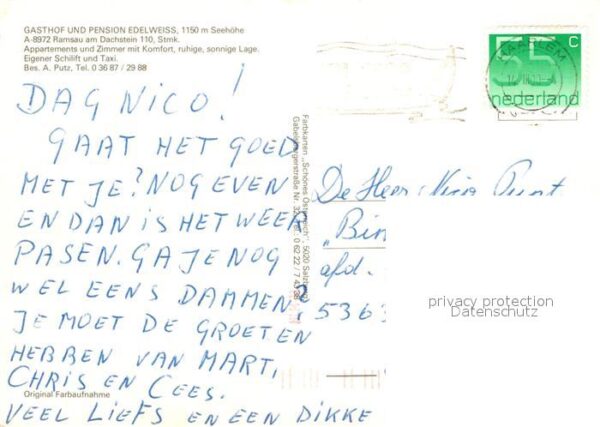 GASTHOF UND PENSION EDELWEISS, 1150 m Seehöhe
A-8972 Ramsau am Dachstein 110, Stmk.
Appartements und Zimmer mit Komfort, ruhige, sonnige Lage.
Eigener Schilift und Taxi.
Bes. A. Putz, Tel. 0 36 87 / 29 88
DAG NICO!
GAAT HET GOED
MET JE? NOG EVEN
EN DAN IS HET WEER
PASEN. GA JE NOG
WEL EENS DAMMEN?
JE MOET DE GROETEN
HEBBEN VAN MART,
CHRIS EN CEES.
VEEL LIEFS EN EEN DIKKE
Original Farbaufnahme
Farbkarten „Schönes Österreich", 5020 Salzburg
Gabelsbergerstraße Nr. Tel. 0 62 22 / 7
HAARLEM
55 C
nederland
De Heer Nico Punt
„Bin
afd.
5363
privacy protection
Datenschutz